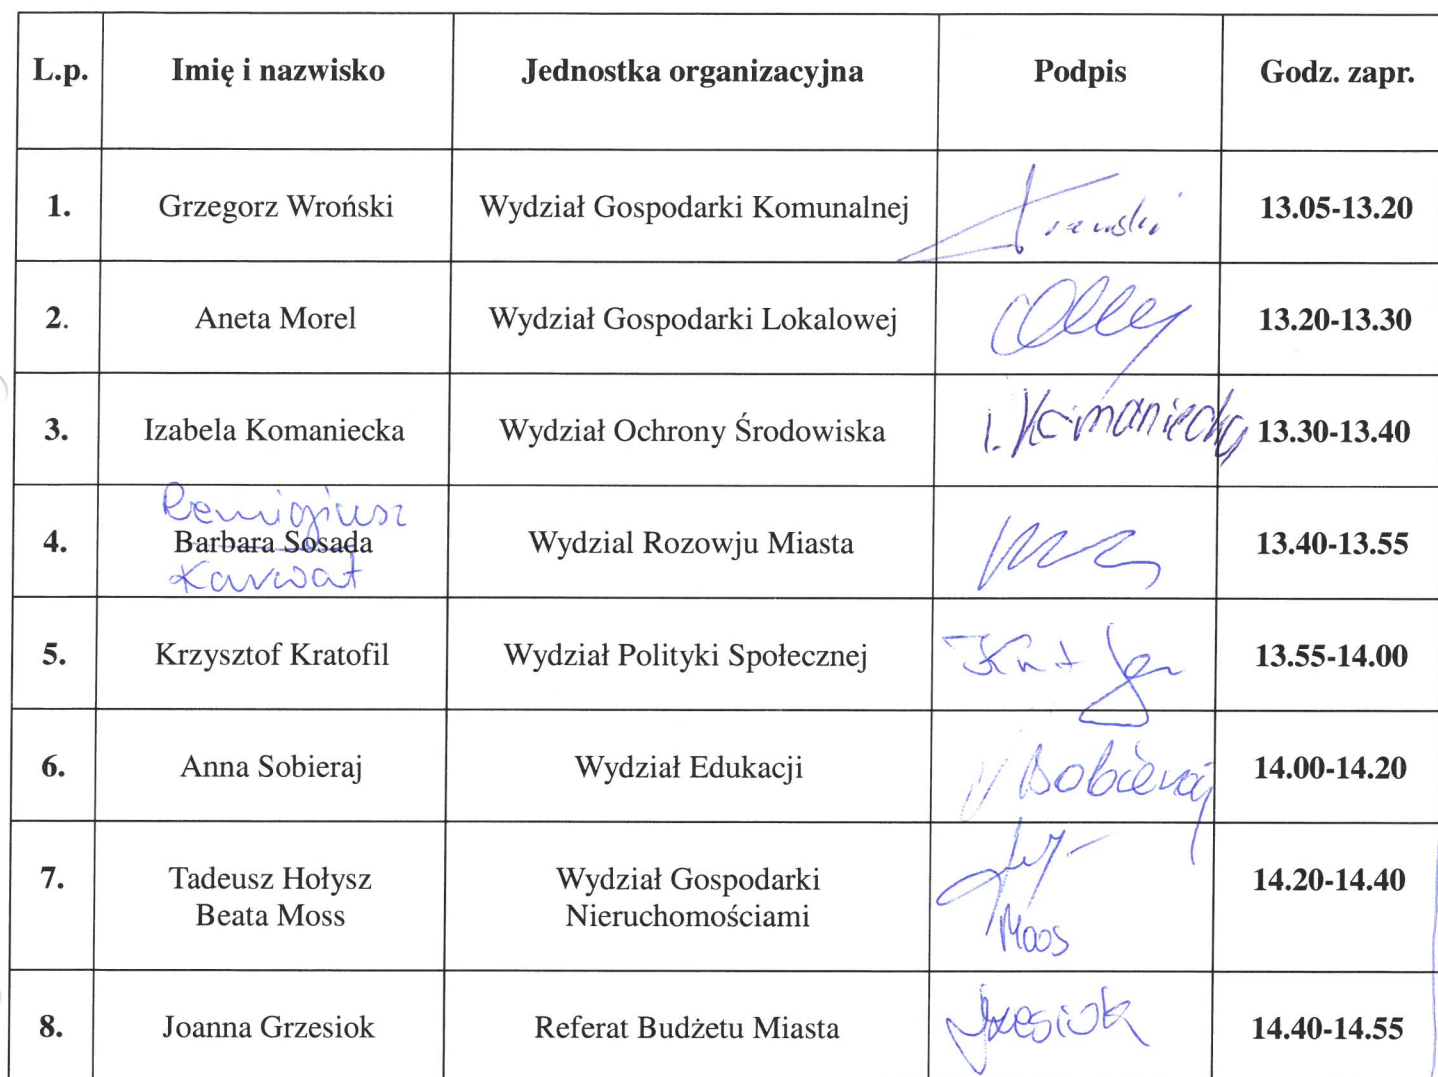 L.p. Imię i nazwisko Jednostka organizacyjna Podpis Godz. zapr.
1. Grzegorz Wroński Wydział Gospodarki Komunalnej 13.05-13.20
2. Aneta Morel Wydział Gospodarki Lokalowej 13.20-13.30
3. Izabela Komaniecka Wydział Ochrony Środowiska I. Komaniecka 13.30-13.40
Remigiusz
4. Barbara Sosada Wydzial Rozowju Miasta 13.40-13.55
Karwat
5. Krzysztof Kratofil Wydział Polityki Społecznej 13.55-14.00
6. Anna Sobieraj Wydział Edukacji Sobieraj 14.00-14.20
7. Tadeusz Hołysz Wydział Gospodarki 14.20-14.40
Beata Moss Nieruchomościami
8. Joanna Grzesiok Referat Budżetu Miasta 14.40-14.55